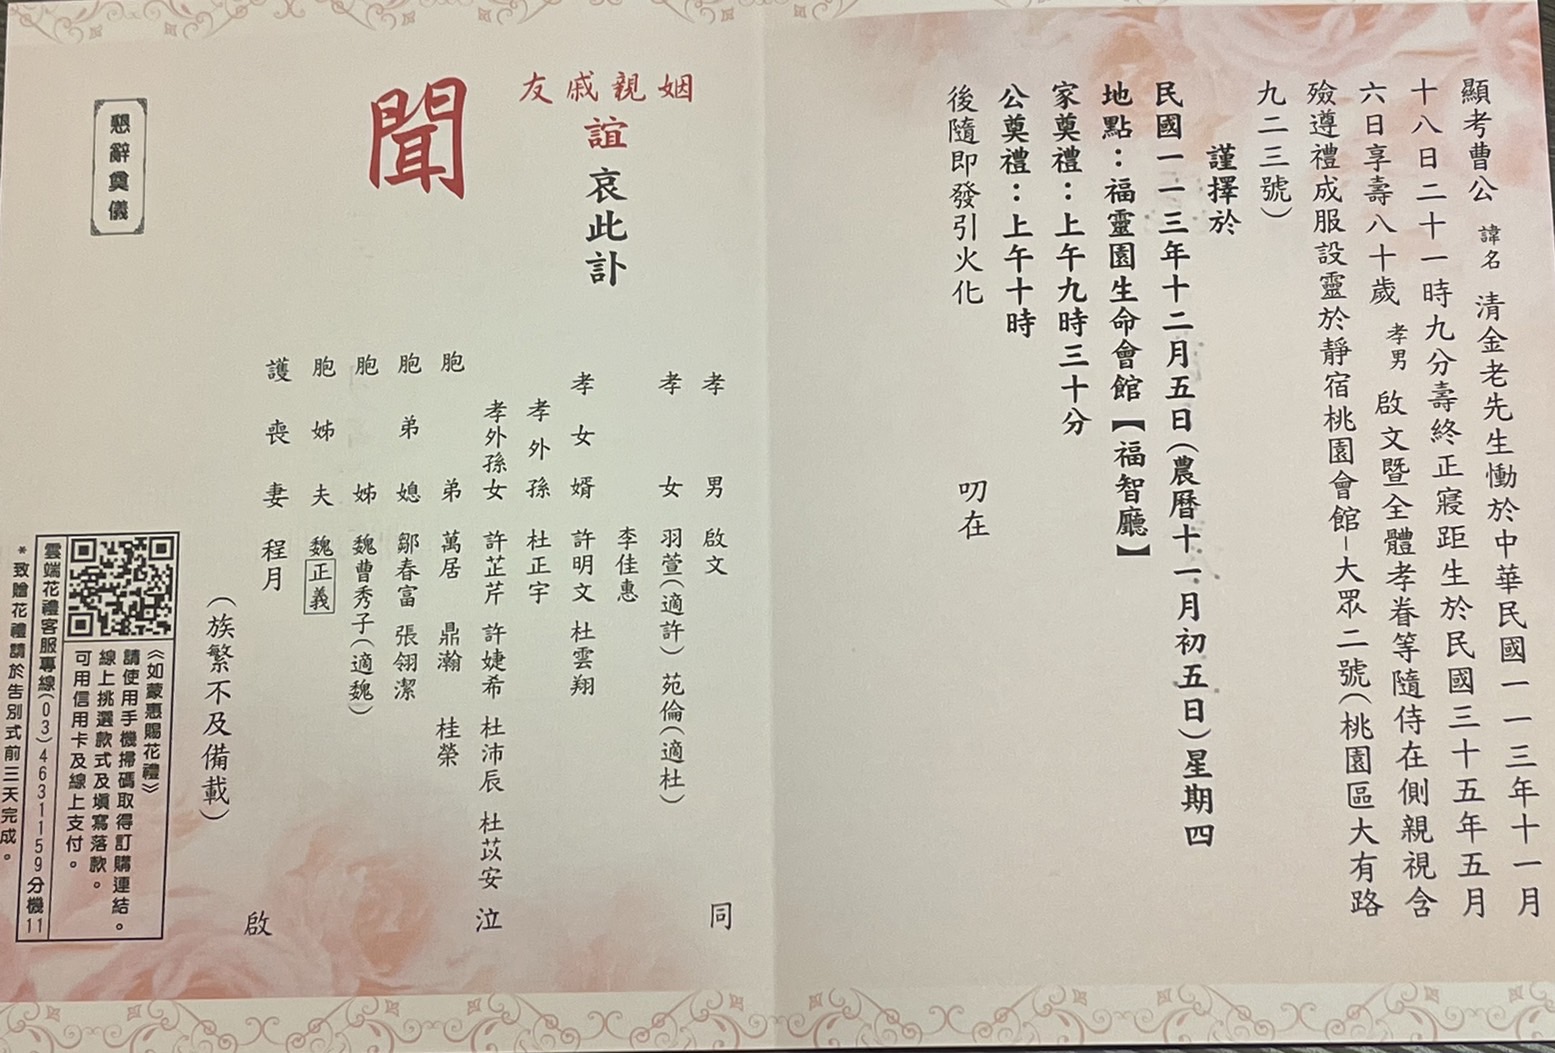 顯考曹公 諱名 清金老先生慟於中華民國一一三年十一月
十八日二十一時九分壽終正寢距生於民國三十五年五月
六日享壽八十歲 孝男 啟文暨全體孝眷等隨侍在側親視含
殮遵禮成服設靈於靜宿桃園會館-大眾二號(桃園區大有路
九二三號)
謹擇於
民國一一三年十二月五日(農曆十一月初五日)星期四
地點：福靈園生命會館【福智廳】
家奠禮：上午九時三十分
公奠禮：上午十時
後隨即發引火化
叨在
姻親戚友
誼哀此訃
聞
孝男 啟文 同
孝女 羽萱(適許) 苑倫(適杜)
李佳惠
孝女婿 許明文 杜雲翔
孝外孫 杜正宇
孝外孫女 許芷芹 許婕希 杜沛辰 杜苡安 泣
胞弟 萬居 鼎瀚 桂榮
胞弟媳 鄒春富 張翎潔
胞姊 魏曹秀子(適魏)
胞姊夫 魏正義
護喪妻 程月 啟
(族繁不及備載)
懇辭奠儀
《如蒙惠賜花禮》
請使用手機掃碼取得訂購連結。
線上挑選款式及填寫落款。
可用信用卡及線上支付。
雲端花禮客服專線(03)4631159分機11
*致贈花禮請於告別式前三天完成。